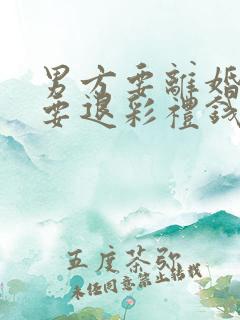 男方要離婚
要退彩禮錢
五度茶弥
未经同意禁止转载